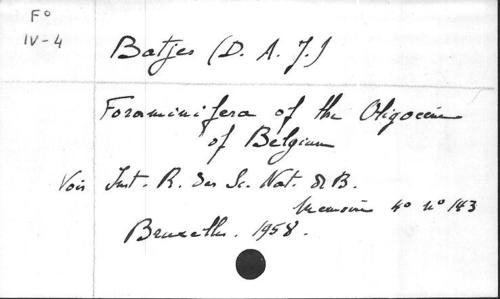 F°
IV-4
Batjes (D. A. J.)
Foraminifera of the Oligocene
of Belgium
Voir Inst. R. des Sc. Nat. de B.
Memoire 4° n° 143
Bruxelles. 1958.